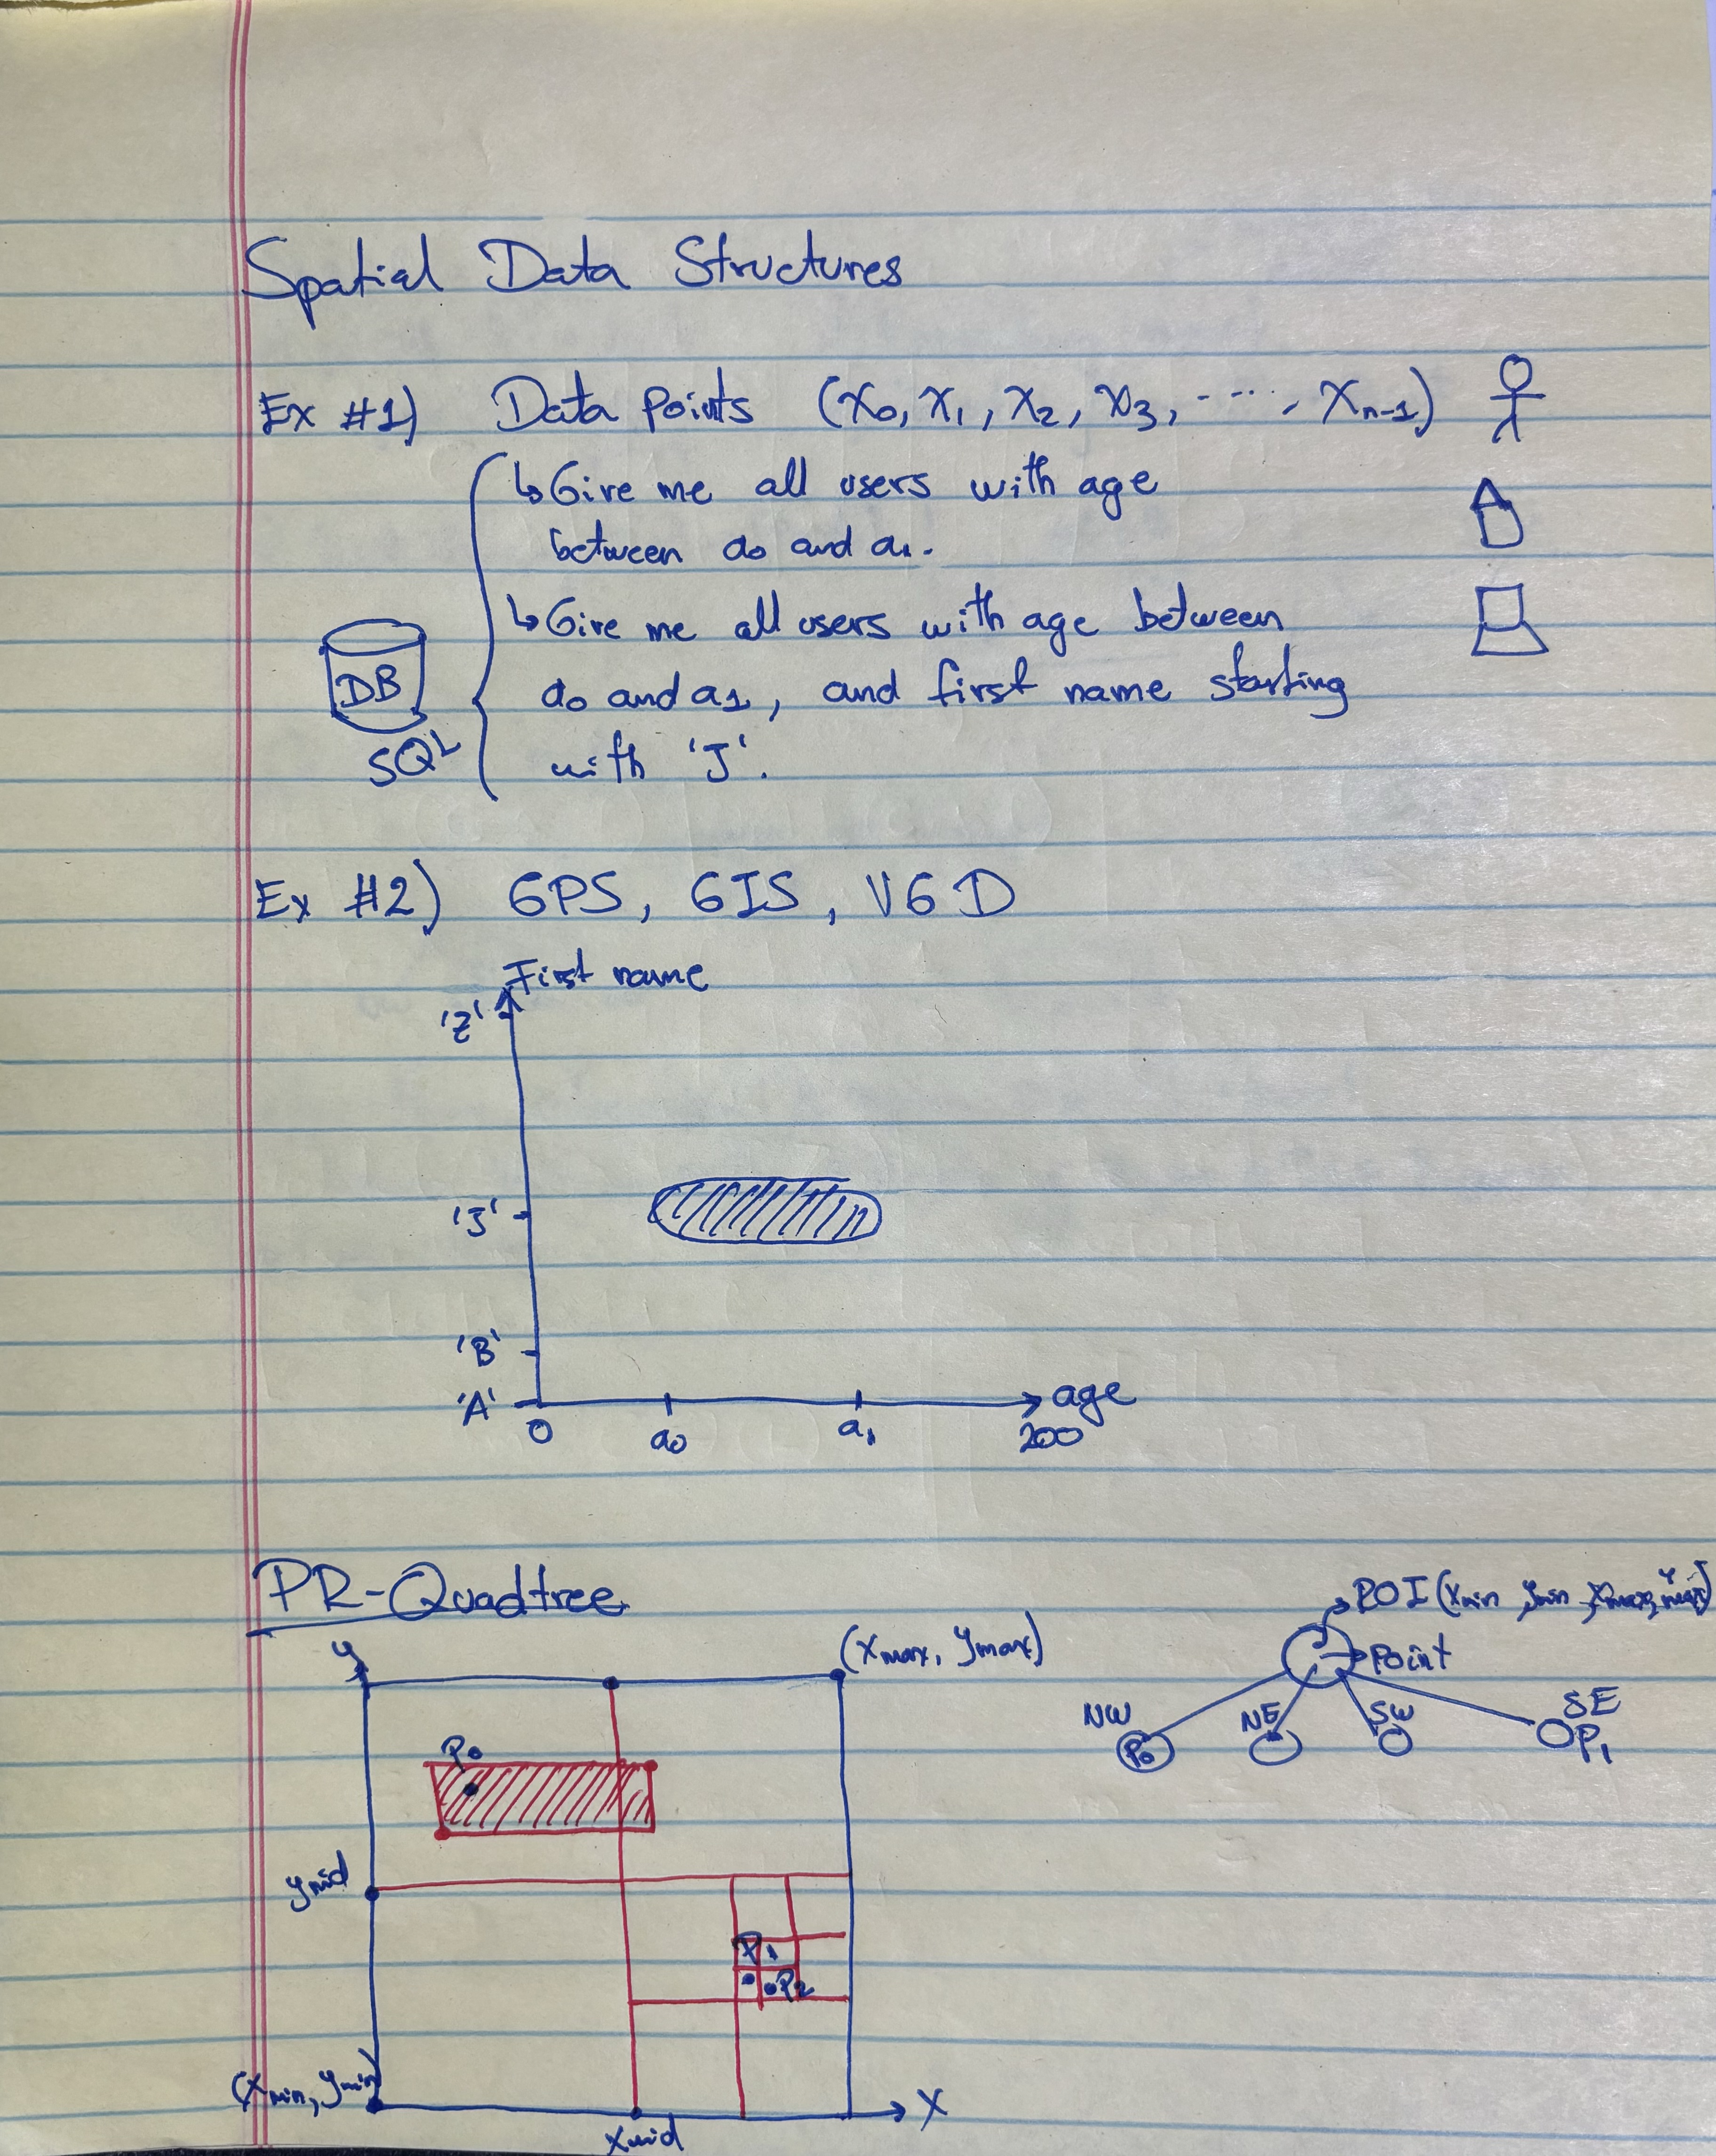 Spatial Data Structures
Ex #1) Data points (x₀, x₁, x₂, x₃, ...., xₙ₋₁)
↳ Give me all users with age
between a₀ and a₁.
↳ Give me all users with age between
a₀ and a₁, and first name starting
with 'J'.
DB
SQL
Ex #2) GPS, GIS, VGD
First name
'Z'
'J'
'B'
'A'
0 a₀ a₁ 200
age
PR-Quadtree
y
(xmax, ymax)
P₀
ymid
P₁
P₂
(xmin, ymin)
xmid
X
ROI (xmin, ymin, xmax, ymax)
Point
NW NE SW SE
P₀ P₁